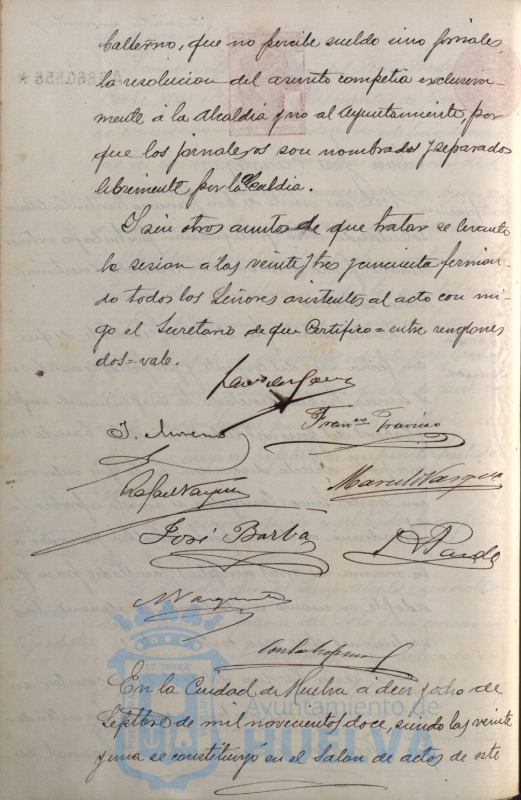 balterno, que no percibe sueldo sino jornales,
la resolucion del asunto competia exclusiva-
mente á la Alcaldia y no al Ayuntamiento, por
que los jornaleros son nombrados y separados
libremente por la Alcaldia.
Y sin otros asuntos de que tratar se levantó
la sesion á las veinte y tres y cincuenta firman-
do todos los Señores asistentes al acto con mi-
go el Secretario de que Certifico = entre renglones
dos = vale.
J. Moreno
Franco
Rafael
José Barba
N. Vazquez
ET TERRÆ
En la Ciudad de Huelva á diez y ocho de
Septbre de mil novecientos doce, siendo las veinte
y una se constituyó en el Salon de actos de este
Ayuntamiento de
HUELVA